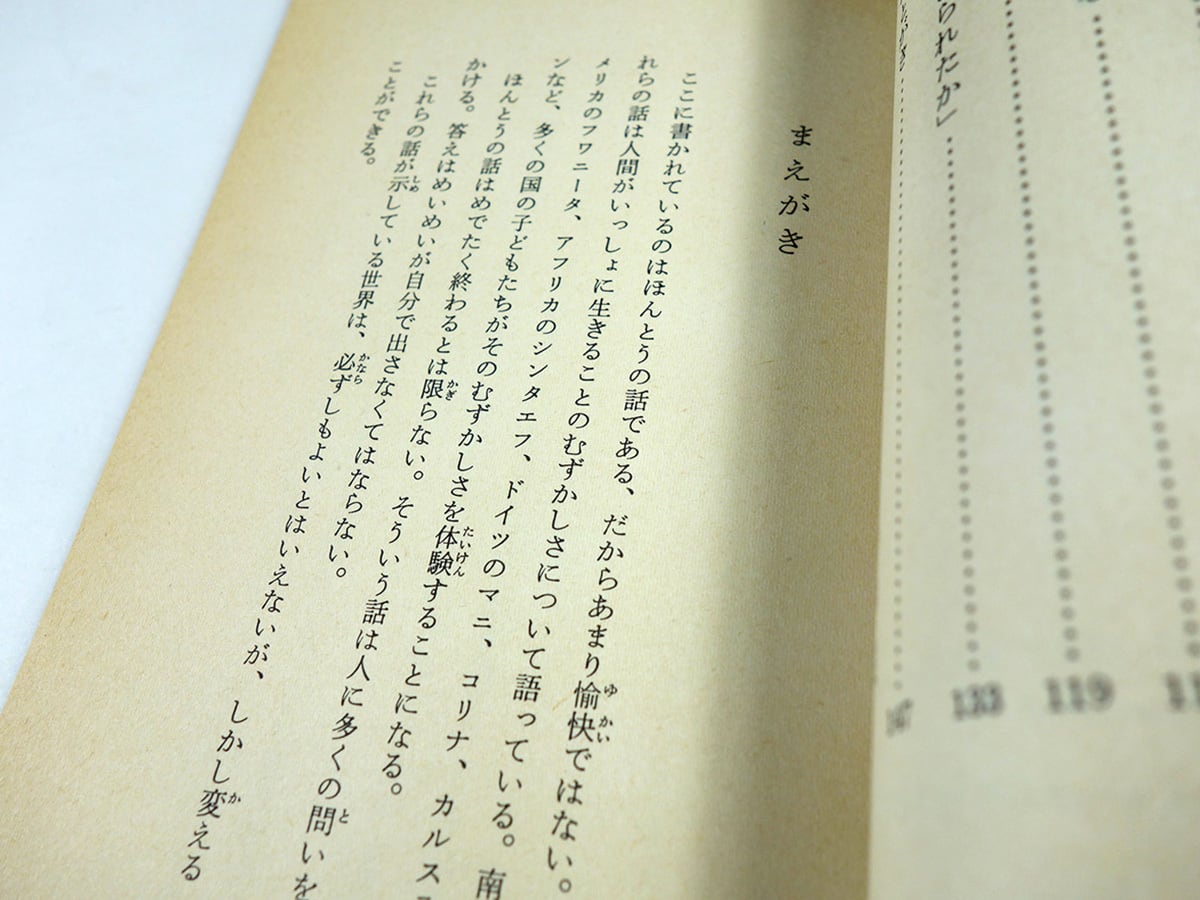 119
られたか」 133
まえがき
ここに書かれているのはほんとうの話である、だからあまり愉快ではない。
れらの話は人間がいっしょに生きることのむずかしさについて語っている。南
メリカのフワニータ、アフリカのシンタエフ、ドイツのマニ、コリナ、カルス
ンなど、多くの国の子どもたちがそのむずかしさを体験することになる。
ほんとうの話はめでたく終わるとは限らない。そういう話は人に多くの問いを
かける。答えはめいめいが自分で出さなくてはならない。
これらの話が示している世界は、必ずしもよいとはいえないが、しかし変える
ことができる。